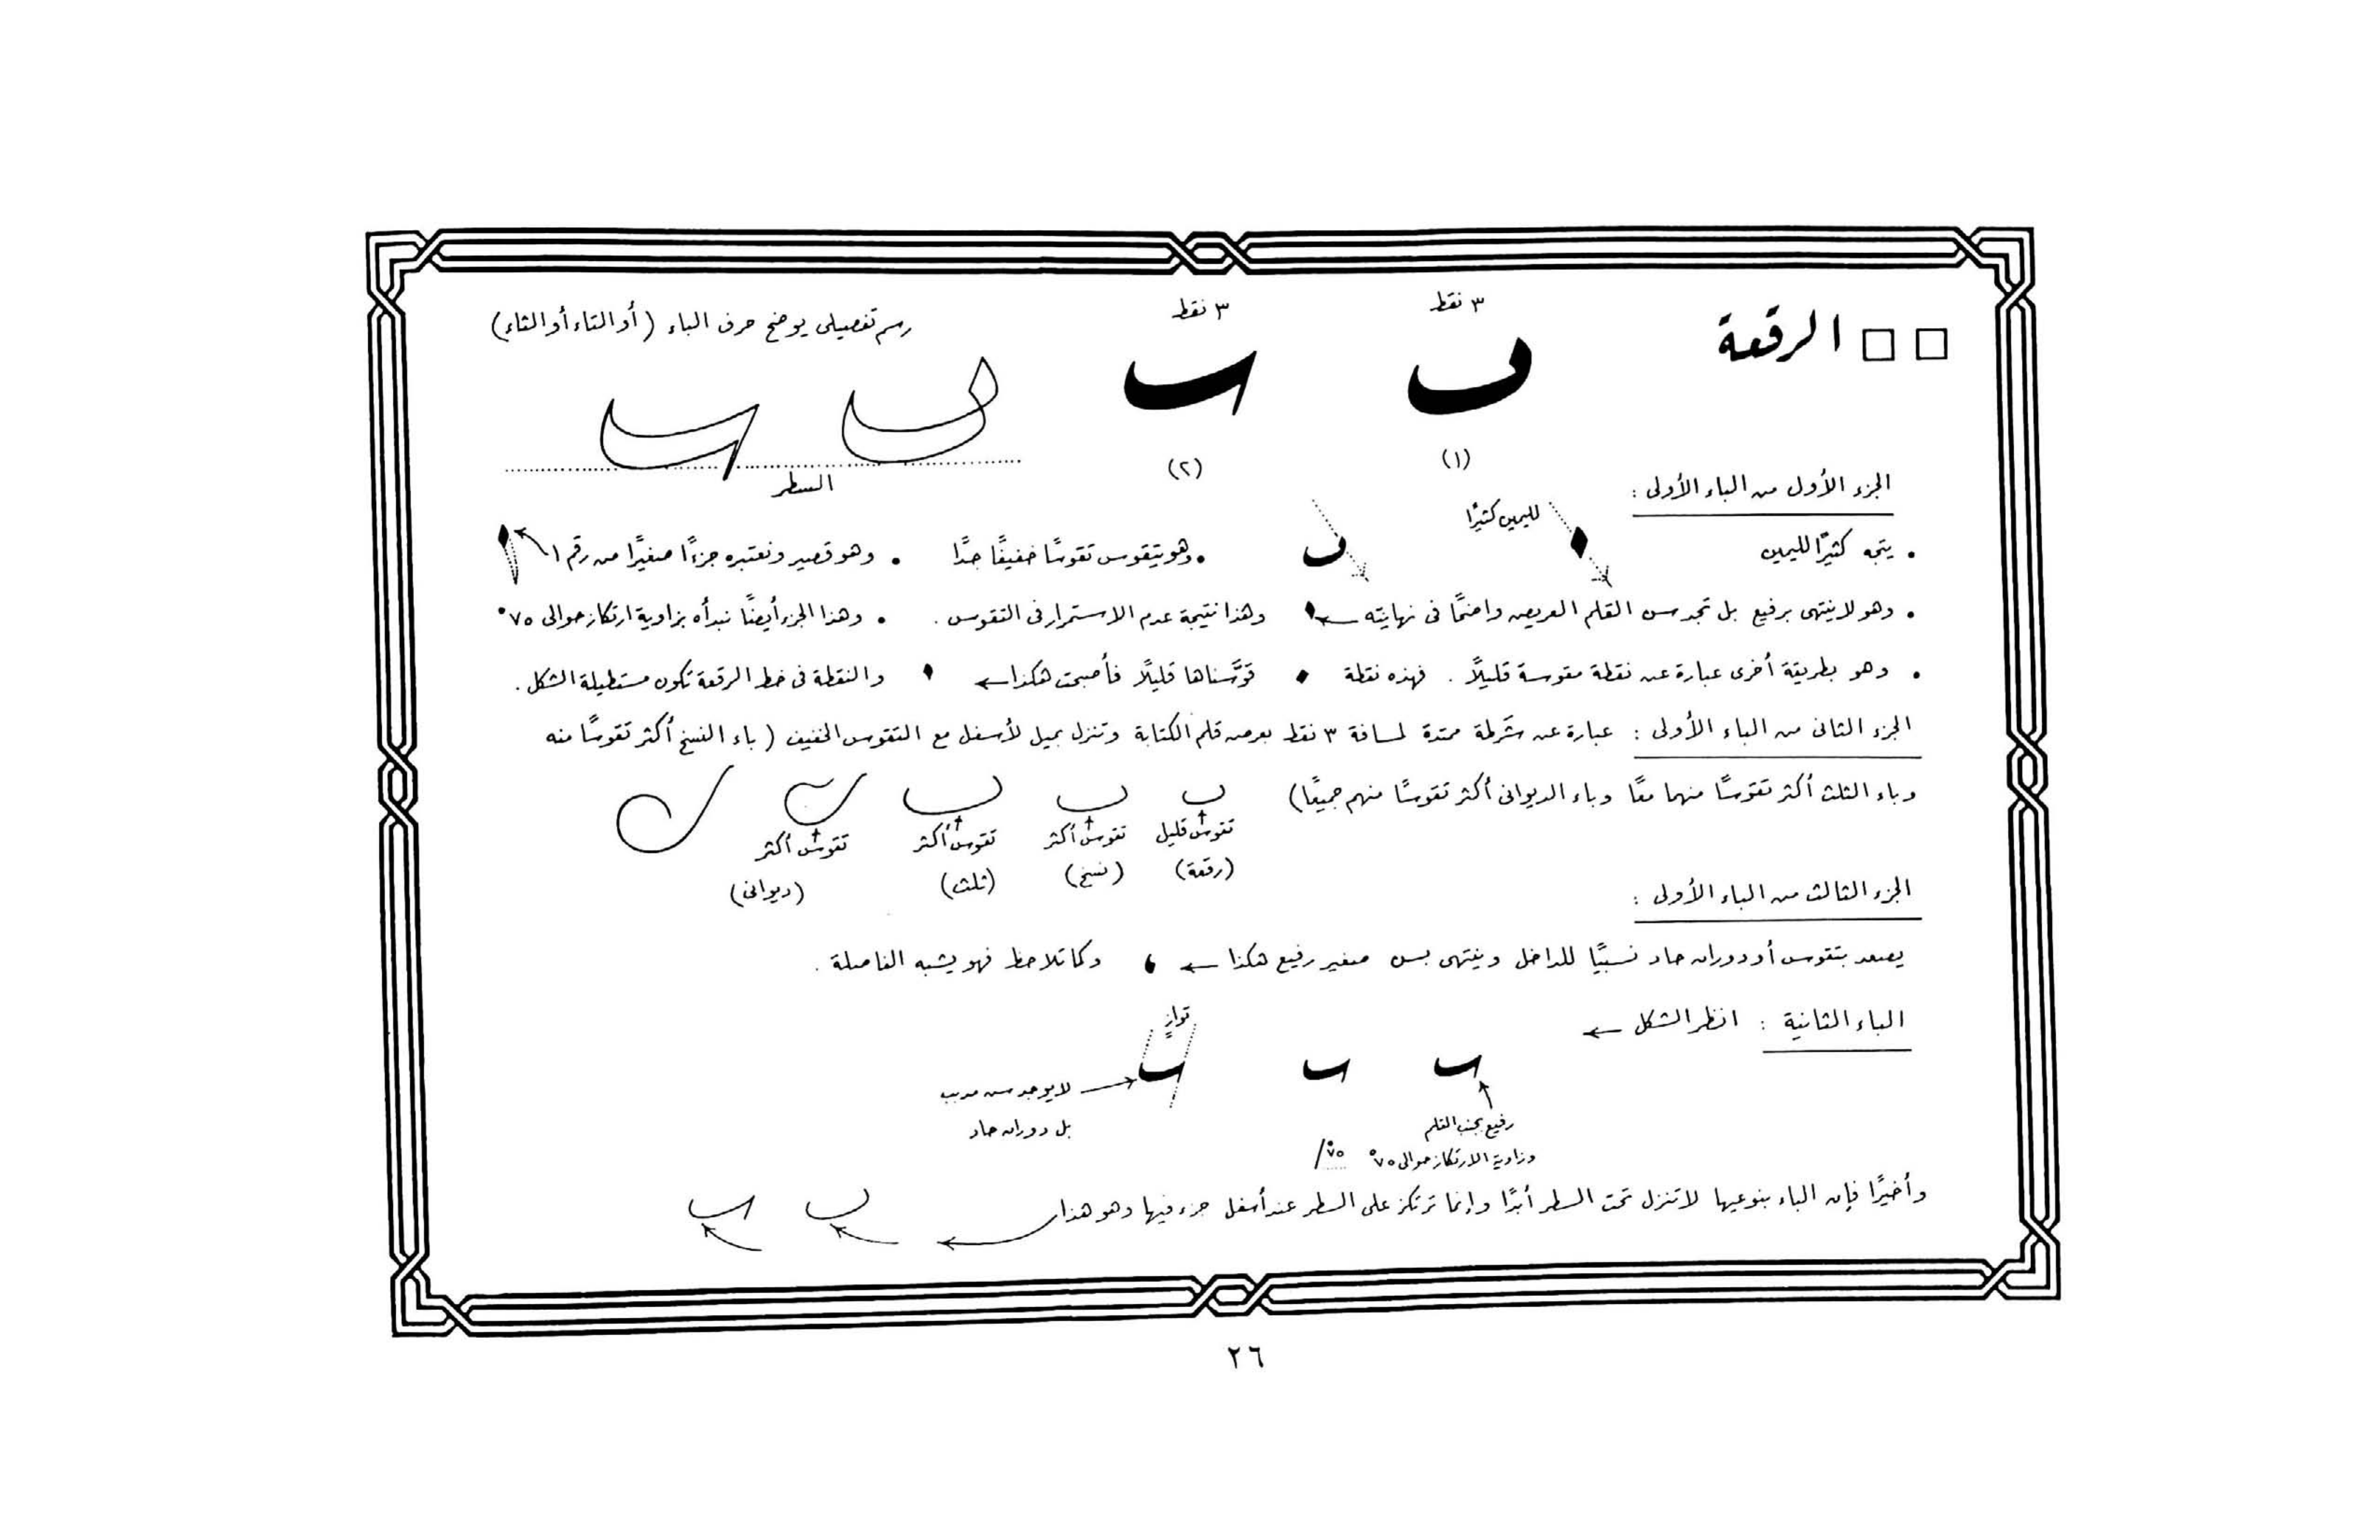 الرقعة
٣ نقط
٣ نقط
رسم تفصيلى يوضح حرف الباء (أو التاء أو الثاء)
(١)
(٢)
السطر
الجزء الأول من الباء الأولى :
• يتجه كثيرًا لليمين
لليمين كثيرًا
• وهو يتقوس تقوسًا خفيفًا جدًا
• وهو قصير ونعتبره جزءًا صغيرًا من رقم ١
• وهو لا ينتهى برفيع بل تجد سن القلم العريض واضحًا فى نهايته ← وهذا نتيجة عدم الاستمرار فى التقوس . • وهذا الجزء أيضًا نبدأه بزاوية ارتكاز حوالى ٧٥°
• وهو بطريقة أخرى عبارة عن نقطة مقوسة قليلًا . فهذه نقطة قوَّسناها قليلًا فأصبحت هكذا ← والنقطة فى خط الرقعة تكون مستطيلة الشكل .
الجزء الثانى من الباء الأولى : عبارة عن شَرطة ممتدة لمسافة ٣ نقط بعرض قلم الكتابة وتنزل بميل لأسفل مع التقوس الخفيف ( باء النسخ أكثر تقوسًا منه
وباء الثلث أكثر تقوسًا منهما معًا وباء الديوانى أكثر تقوسًا منهم جميعًا)
تقوس قليل
(رقعة)
تقوس أكثر
(نسخ)
تقوس أكثر
(ثلث)
تقوس أكثر
(ديوانى)
الجزء الثالث من الباء الأولى :
يصعد بتقوس أو دوران حاد نسبيًا للداخل وينتهى بسن صغير رفيع هكذا ← وكما تلاحظ فهو يشبه الفاصلة .
الباء الثانية : انظر الشكل ←
توازٍ
رفيع بجنب القلم
وزاوية الارتكاز حوالى ٧٥°
٧٥°
لا يوجد سن مدبب
بل دوران حاد
وأخيرًا فإن الباء بنوعيها لا تنزل تحت السطر أبدًا وإنما ترتكز على السطر عند أسفل جزء فيها وهو هذا
٢٦